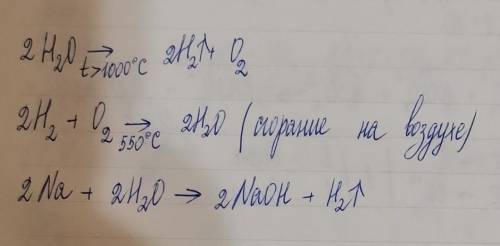 2 H₂O →t>1000°C 2H₂↑ + O₂
2H₂ + O₂ →550°C 2H₂O (сгорание на воздухе)
2 Na + 2H₂O → 2 NaOH + H₂↑